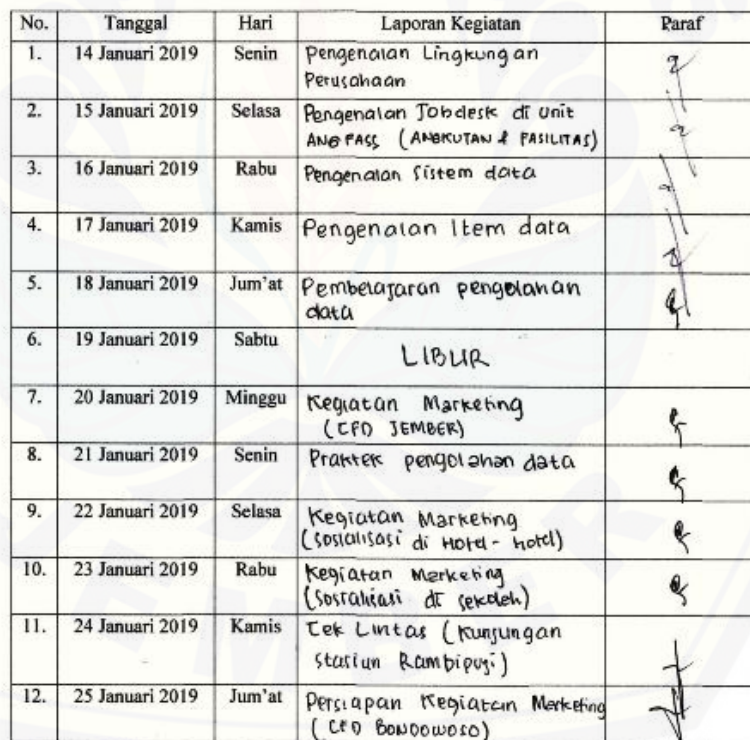 No. Tanggal Hari Laporan Kegiatan Paraf
1. 14 Januari 2019 Senin Pengenalan Lingkungan
Perusahaan
2. 15 Januari 2019 Selasa Pengenalan Jobdesk di Unit
ANGFASS (ANGKUTAN & FASILITAS)
3. 16 Januari 2019 Rabu Pengenalan Sistem data
4. 17 Januari 2019 Kamis Pengenalan Item data
5. 18 Januari 2019 Jum'at Pembelajaran pengolahan
data
6. 19 Januari 2019 Sabtu LIBUR
7. 20 Januari 2019 Minggu Kegiatan Marketing
(CFD JEMBER)
8. 21 Januari 2019 Senin Praktek pengolahan data
9. 22 Januari 2019 Selasa Kegiatan Marketing
(sosialisasi di Hotel-hotel)
10. 23 Januari 2019 Rabu Kegiatan Marketing
(Sosialisasi di sekolah)
11. 24 Januari 2019 Kamis Cek Lintas (Kunjungan
stasiun Rambipuji)
12. 25 Januari 2019 Jum'at Persiapan Kegiatan Marketing
(CFD BONDOWOSO)